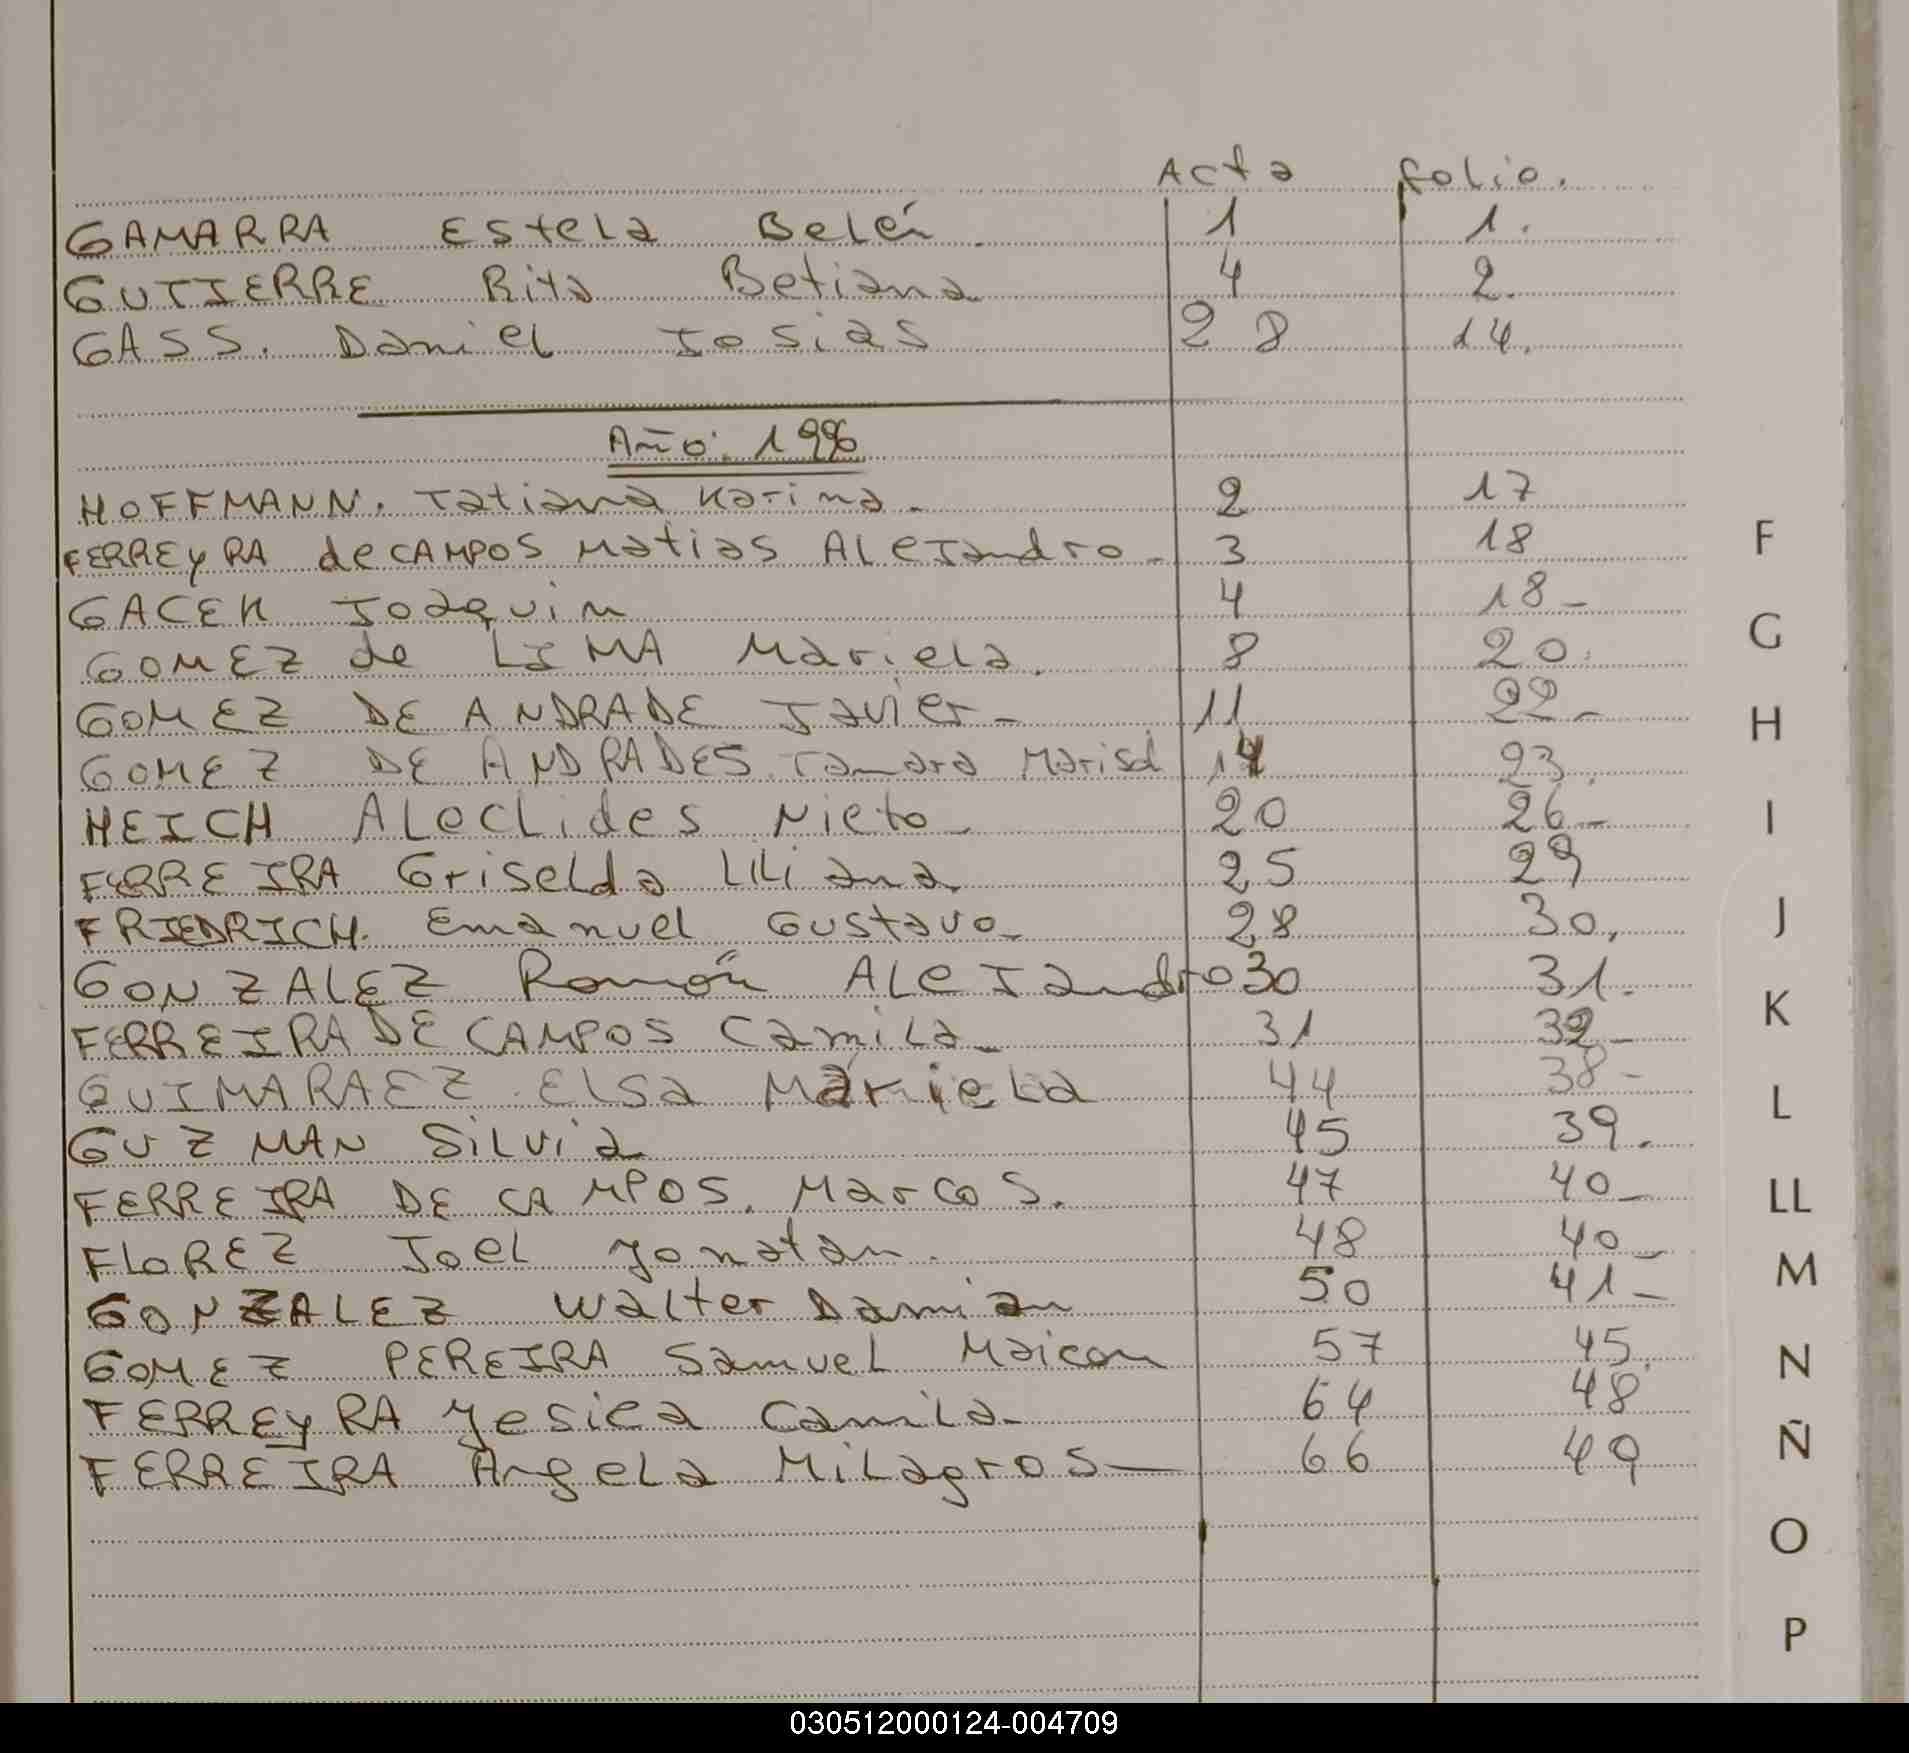 Acta folio.
GAMARRA Estela Belén. 1 1.
GUTIERRE Rita Betiana 4 2.
GASS. Daniel Josias 28 14.
Año: 1996
HOFFMANN. Tatiana Karina. 2 17
FERREyRA de CAMPOS Matias ALeJandro- 3 18
GACEK Joaquin 4 18-
GOMEZ de LIMA Mariela. 8 20.
GOMEZ DE ANDRADE Javier- 11 22-
GOMEZ DE ANDRADES. Tamara Marisol 14 23.
HEICH ALecLides Nieto- 20 26-
FERREIRA Griselda LiLiana 25 29
FRIEDRICH. Emanuel Gustavo- 28 30.
GONZALEZ Ramón ALeJandro 30 31.
FERREIRA DE CAMPOS Camila- 31 32-
GUIMARAEZ. Elsa Mariela 44 38-
GUZMAN SiLvia 45 39.
FERREIRA DE CAMPOS. Marcos. 47 40-
FLOREZ Joel yonatan. 48 40-
GONZALEZ Walter Damian 50 41-
GOMEZ PEREIRA Samuel Maicon 57 45.
FERREyRA yesica Camila- 64 48
FERREIRA Angela Milagros- 66 49
F
G
H
I
J
K
L
LL
M
N
Ñ
O
P
030512000124-004709